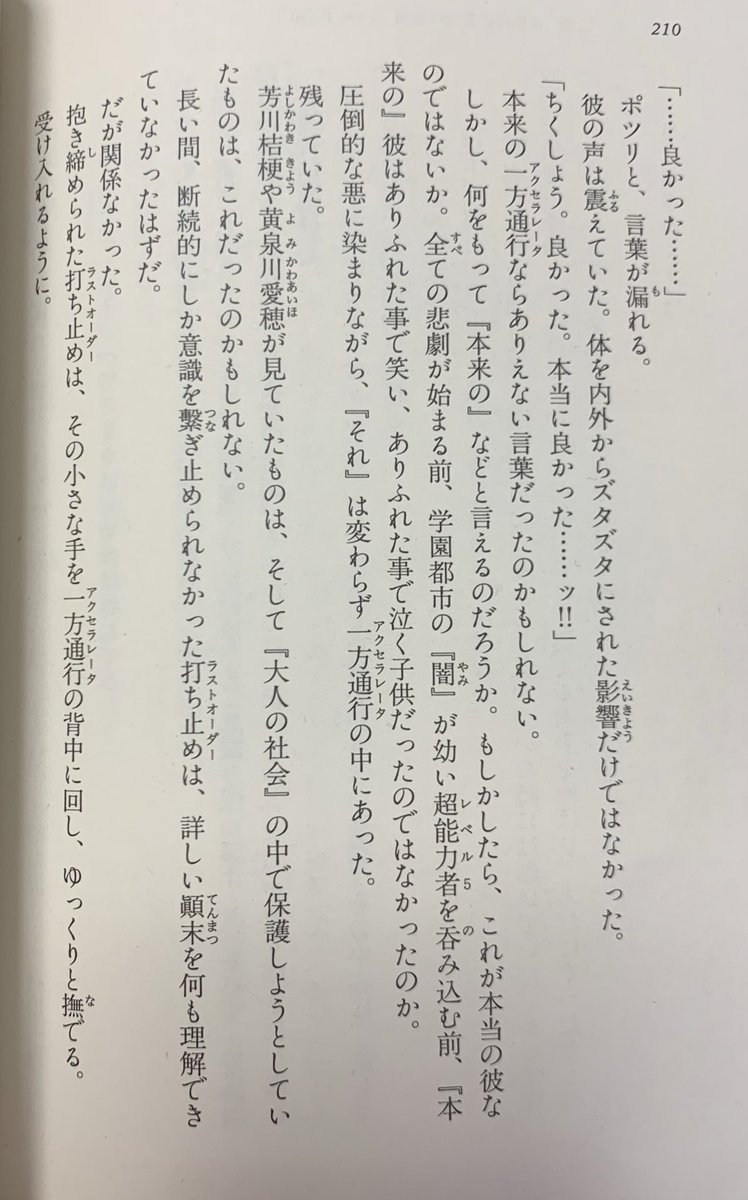 210
「……良かった……」
ポツリと、言葉が漏れる。
彼の声は震えていた。体を内外からズタズタにされた影響だけではなかった。
「ちくしょう。良かった。本当に良かった……ッ!!」
本来の一方通行ならありえない言葉だったのかもしれない。
しかし、何をもって『本来の』などと言えるのだろうか。もしかしたら、これが本当の彼な
のではないか。全ての悲劇が始まる前、学園都市の『闇』が幼い超能力者を呑み込む前、『本
来の』彼はありふれた事で笑い、ありふれた事で泣く子供だったのではなかったのか。
圧倒的な悪に染まりながら、『それ』は変わらず一方通行の中にあった。
残っていた。
芳川桔梗や黄泉川愛穂が見ていたものは、そして『大人の社会』の中で保護しようとしてい
たものは、これだったのかもしれない。
長い間、断続的にしか意識を繋ぎ止められなかった打ち止めは、詳しい顚末を何も理解でき
ていなかったはずだ。
だが関係なかった。
抱き締められた打ち止めは、その小さな手を一方通行の背中に回し、ゆっくりと撫でる。
受け入れるように。